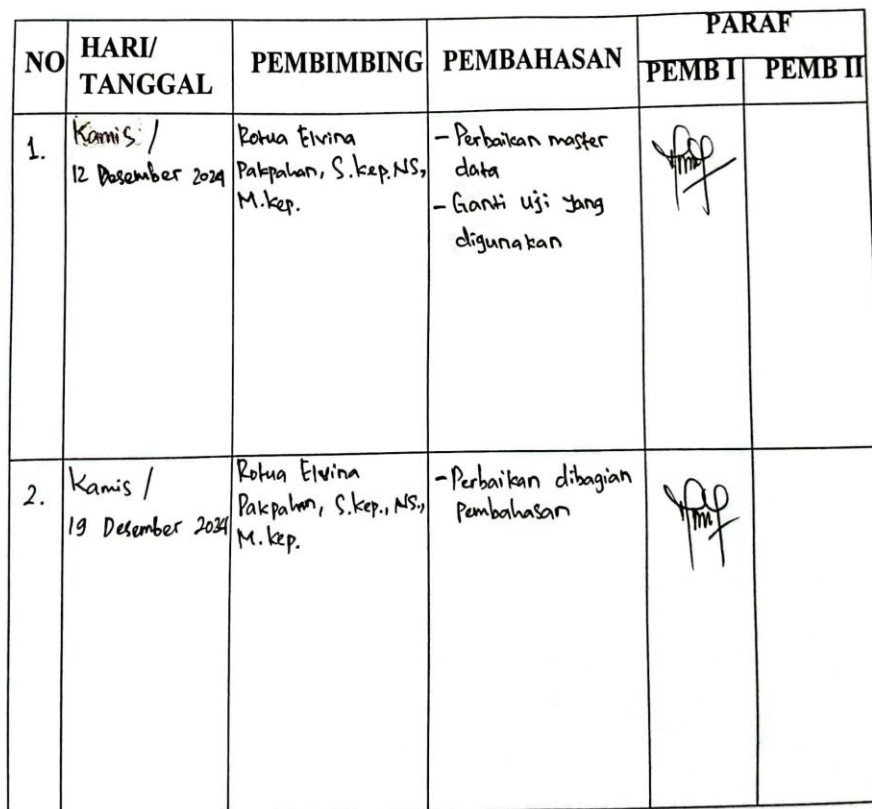 NO
HARI/
TANGGAL
PEMBIMBING
PEMBAHASAN
PARAF
PEMB I
PEMB II
1.
Kamis /
12 Desember 2024
Rotua Elvina
Pakpahan, S.kep,NS,
M.kep.
- Perbaikan master
data
- Ganti uji yang
digunakan
2.
Kamis /
19 Desember 2024
Rotua Elvina
Pakpahan, S.kep., NS.,
M.kep.
- Perbaikan dibagian
Pembahasan